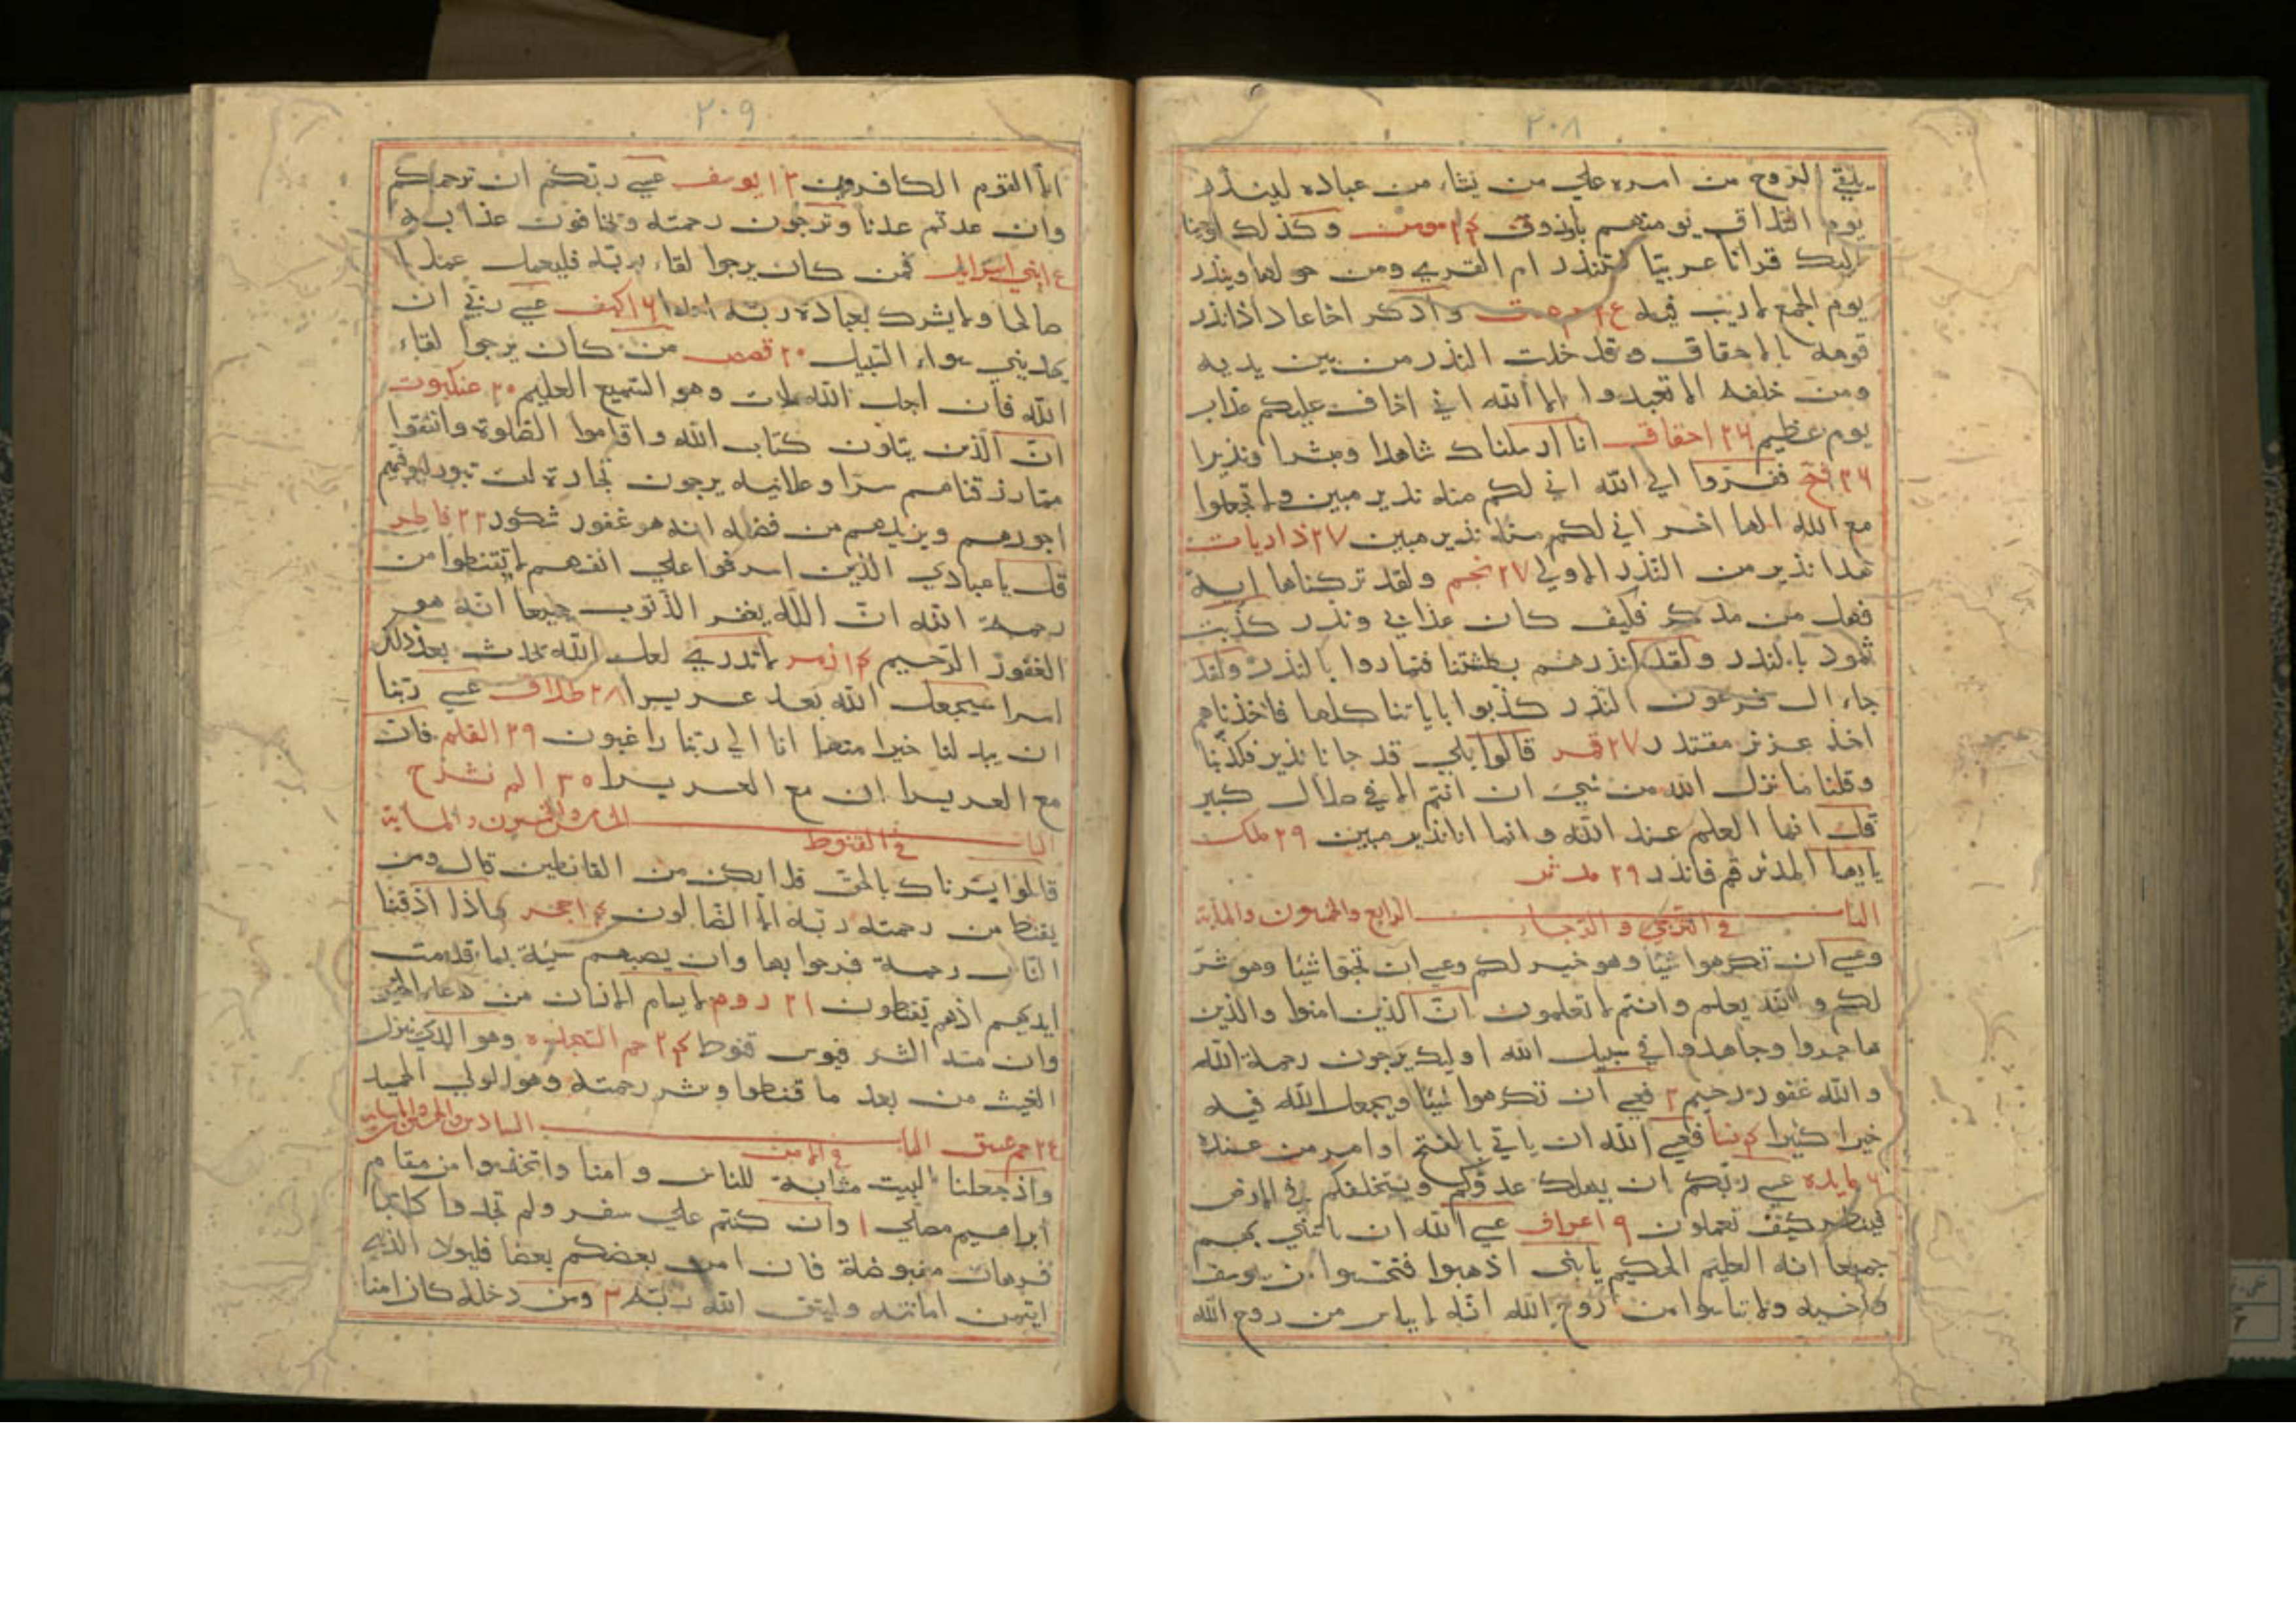 ٢٠٨
يلقي الروح من امره علي من يشاء من عباده لينذر
يوم التلاق يومهم بارزون ٢٤ مومن وكذلك اوحينا
اليك قرانا عربيا لتنذر ام القري ومن حولها وينذر
يوم الجمع لا ريب فيه واذكر اخا عاد اذ انذر
قومه بالاحقاف وقد خلت النذر من بين يديه
ومن خلفه الا تعبدوا الا الله اني اخاف عليكم عذاب
يوم عظيم ٢٦ احقاف انا ارسلناك شاهدا ومبشرا ونذيرا
٢٦ فتح ففروا الي الله اني لكم منه نذير مبين ولا تجعلوا
مع الله الها اخر اني لكم منه نذير مبين ٢٧ ذاريات
هذا نذير من النذر الاولي ٢٧ نجم ولقد تركناها اية
فهل من مدكر فكيف كان عذابي ونذر كذبت
ثمود بالنذر ولقد انذرهم بطشتنا فتماروا بالنذر ولقد
جاء ال فرعون النذر كذبوا باياتنا كلها فاخذناهم
اخذ عزيز مقتدر ٢٧ قمر قالوا بلي قد جانا نذير فكذبنا
وقلنا ما نزل الله من شيء ان انتم الا في ضلال كبير
قل انما العلم عند الله وانما انا نذير مبين ٢٩ ملك
يايها المدثر قم فانذر ٢٩ مدثر
الباب الرابع والخمسون والماية
في الترجي و الرجاء
وعسي ان تكرهوا شيئا وهو خير لكم وعسي ان تحبوا شيئا وهو شر
لكم و الله يعلم وانتم لا تعلمون ان الذين امنوا والذين
هاجروا وجاهدوا في سبيل الله اوليك يرجون رحمة الله
والله غفور رحيم ٢ فعسي ان تكرهوا شيئا ويجعل الله فيه
خيرا كثيرا ٤ نسا فعسي الله ان ياتي بالفتح او امر من عنده
٦ مايده عسي ربكم ان يهلك عدوكم ويستخلفكم في الارض
فينظر كيف تعملون ٩ اعراف عسي الله ان ياتيني بهم
جميعا انه العليم الحكيم يا بني اذهبوا فتحسسوا من يوسف
واخيه ولا تايسوا من روح الله انه لا ييايس من روح الله
٢٠٩
الا القوم الكافرون ١٣ يوسف عسي ربكم ان يرحمكم
وان عدتم عدنا ويرجون رحمته ويخافون عذابه
بني اسرايل فمن كان يرجوا لقاء ربه فليعمل عملا
صالحا ولا يشرك بعبادة ربه احدا ١٦ كهف عسي ربي ان
يهديني سواء السبيل ٢٠ قصص من كان يرجوا لقاء
الله فان اجل الله لات وهو السميع العليم ٢٠ عنكبوت
ان الذين يتلون كتاب الله واقاموا الصلوة وانفقوا
مما رزقناهم سرا وعلانيه يرجون تجارة لن تبور ليوفيهم
اجورهم ويزيدهم من فضله انه هو غفور شكور ٢٢ فاطر
قل يا عبادي الذين اسرفوا علي انفسهم لا تقنطوا من
رحمة الله ان الله يغفر الذنوب جميعا انه هو
الغفور الرحيم ٢٤ زمر لا تدري لعل الله يحدث بعد ذلك
امرا سيجعل الله بعد عسر يسرا ٢٨ طلاق عسي ربنا
ان يبدلنا خيرا منها انا الي ربنا راغبون ٢٩ القلم فان
مع العسر يسرا ان مع العسر يسرا ٣٠ الم نشرح
الباب الخامس والخمسون والماية
في القنوط
قالوا بشرناك بالحق فلا تكن من القانطين قال ومن
يقنط من رحمته ربه الا الضالون ١٤ حجر واذا اذقنا
الناس رحمة فرحوا بها وان يصبهم سيئة بما قدمت
ايديهم اذ هم يقنطون ٢١ روم لا يسام الانسان من دعاء الخير
وان مسه الشر فيوس قنوط ٢٤ حم السجده وهو الذي ينزل
الغيث من بعد ما قنطوا وينشر رحمته وهو الولي الحميد
حم عسق الباب السادس والخمسون والماية
في الامن
واذ جعلنا البيت مثابة للناس و امنا واتخذوا من مقام
ابراهيم مصلي ١ وان كنتم علي سفر ولم تجدوا كاتبا
فرهان مقبوضة فان امن بعضكم بعضا فليود الذي
ايتمن امانته وليتق الله ربه ٣ ومن دخله كان امنا